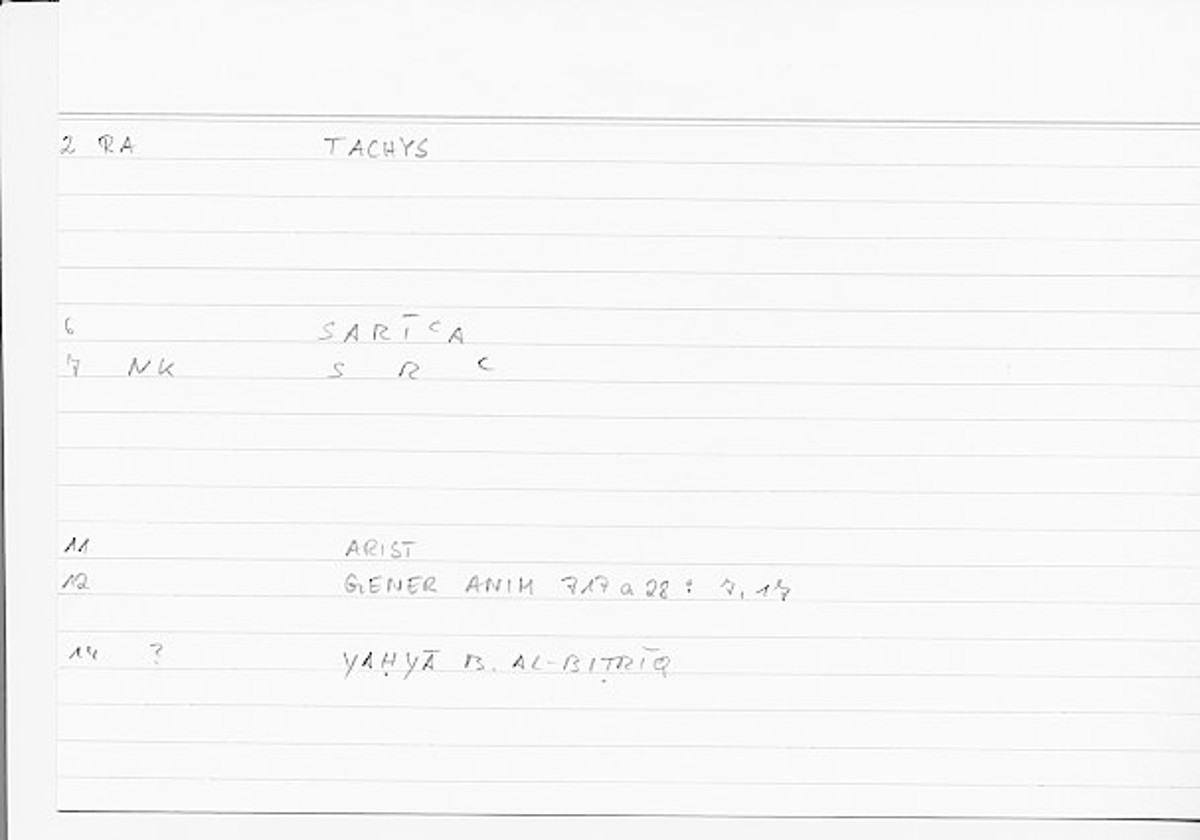 2 RA TACHYS
6 SARĪcA
7 NK S R c
11 ARIST
12 GENER ANIM 717 a 28 : 7, 17
14 ? YAḤYĀ B. AL-BIṬRĪQ